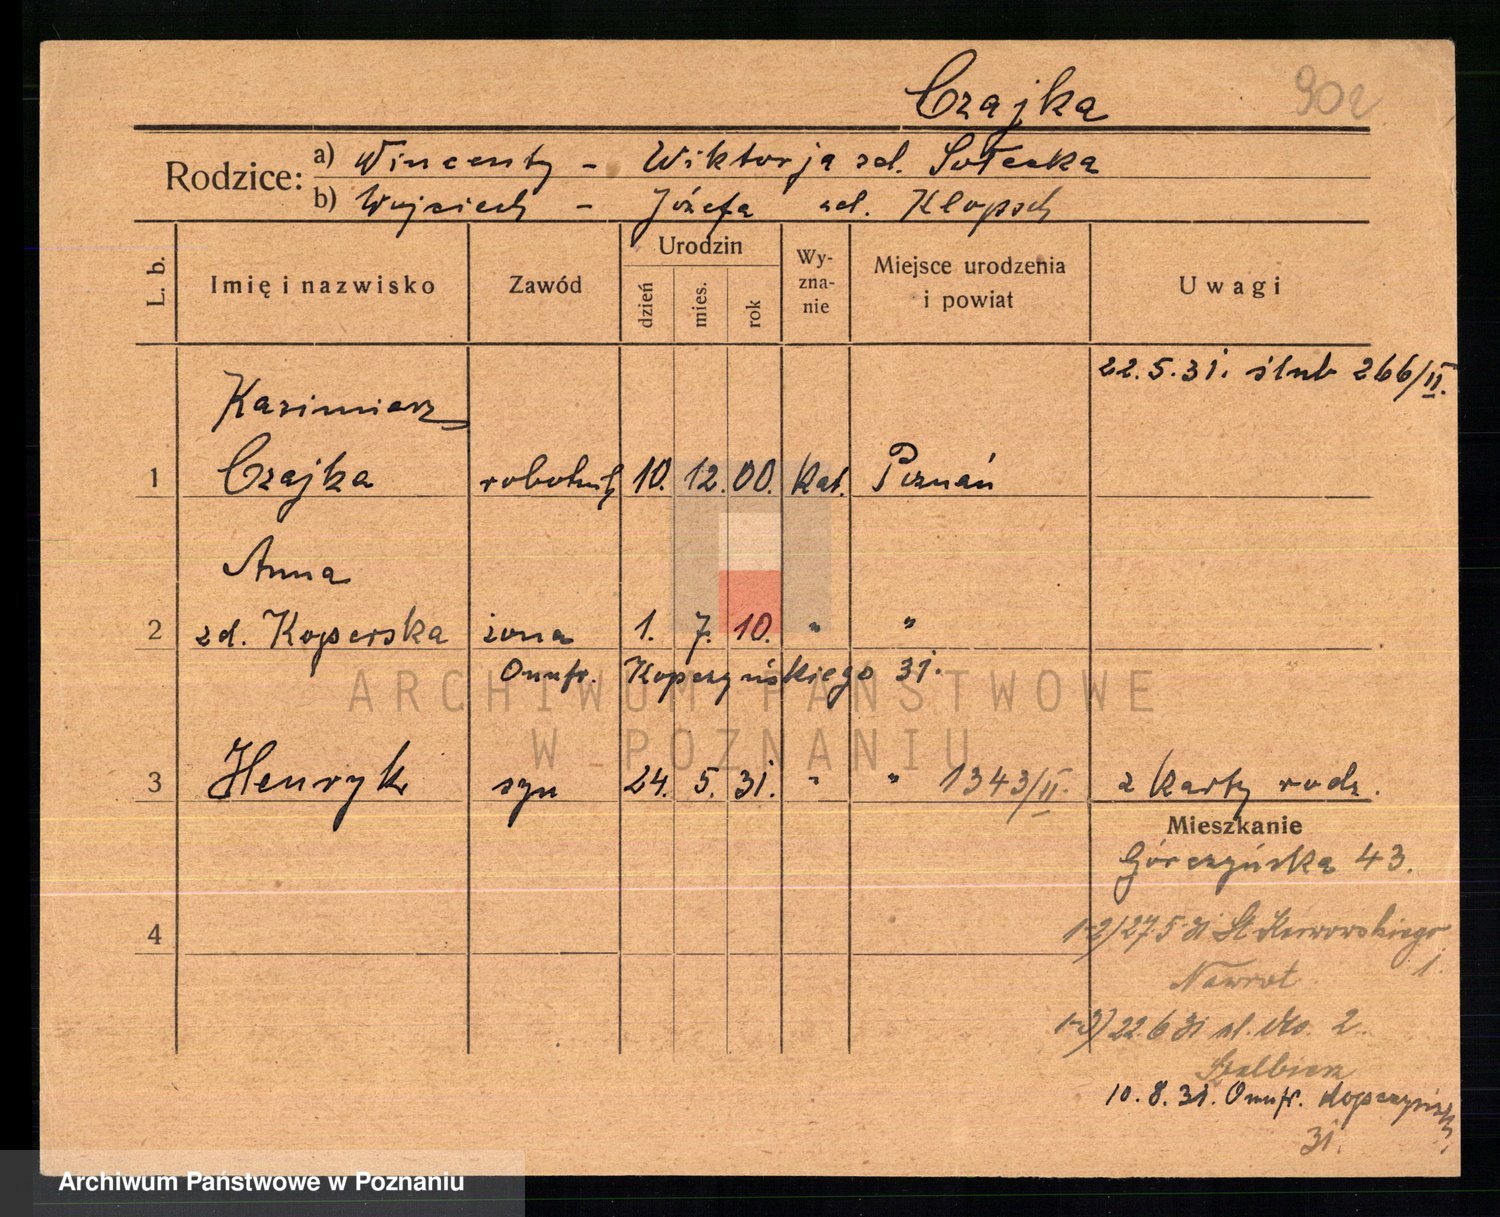 Czajka 902
Rodzice: a) Wincenty - Wiktorja zd. Sołecka
b) Wojciech - Józefa zd. Klopsch
L. b. Imię i nazwisko Zawód Urodzin dzień mies. rok Wy-zna-nie Miejsce urodzenia i powiat Uwagi
22.5.31. ślub 266/II.
Kazimierz
1 Czajka robotnik 10. 12. 00. kat. Poznań
Anna
2 zd. Koperska żona 1. 7. 10. " "
Onufr. Kopczyńskiego 31.
ARCHIWUM PAŃSTWOWE
W POZNANIU
3 Henryk syn 24. 5. 31. " " 1343/II. z karty rodz.
Mieszkanie
Górczyńska 43.
4
1-2) 27.5.31 St.
1.
Nawrot
1-3) 22.6.31 2.
10.8.31. Onufr. Kopczyńsk
31.
Archiwum Państwowe w Poznaniu